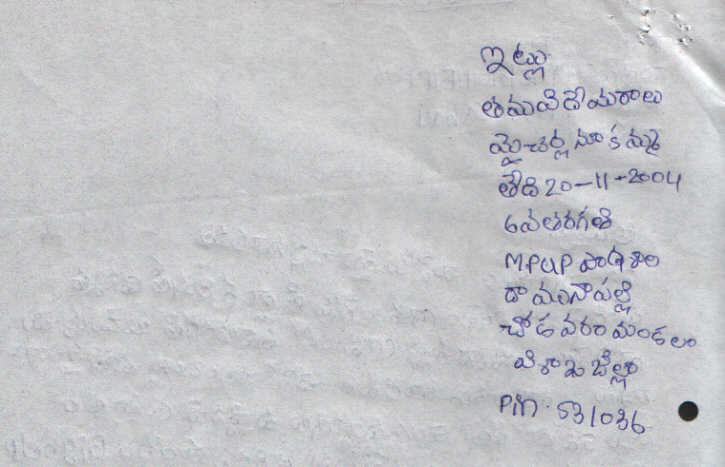 ఇట్లు
తమవిదేయురాలు
మైచర్ల నూకమ్మ
తేది 20-11-2004
6వతరగతి
MPUP పాఠశాల
రామునాపల్లి
చోడవరం మండలం
విశాఖ జిల్లా
PIN. 531036